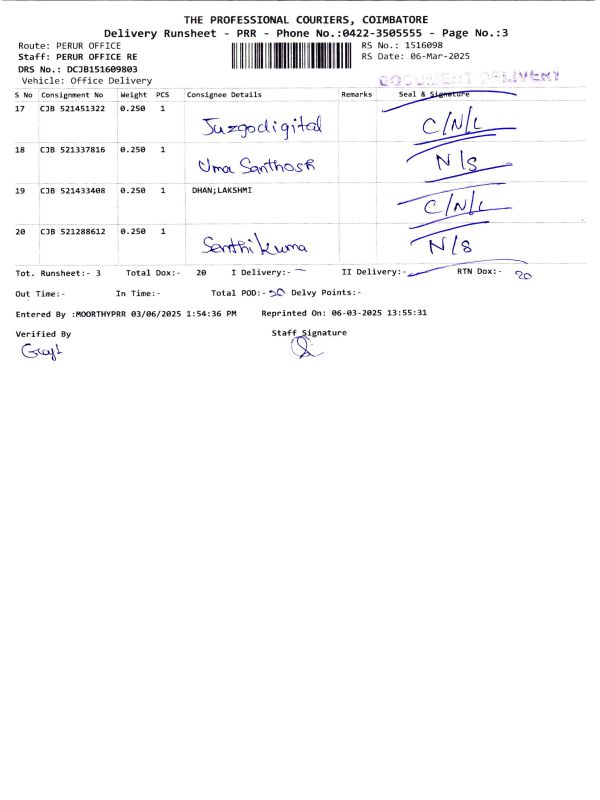 THE PROFESSIONAL COURIERS, COIMBATORE
Delivery Runsheet - PRR - Phone No.:0422-3505555 - Page No.:3
Route: PERUR OFFICE RS No.: 1516098
Staff: PERUR OFFICE RE RS Date: 06-Mar-2025
DRS No.: DCJB151609803
Vehicle: Office Delivery DOCUMENT DELIVERY
S No Consignment No Weight PCS Consignee Details Remarks Seal & Signature
17 CJB 521451322 0.250 1 Juzgodigital C/N/L
18 CJB 521337816 0.250 1 Uma Santhosh N/S
19 CJB 521433408 0.250 1 DHAN;LAKSHMI C/N/L
20 CJB 521288612 0.250 1 Senthikuma N/S
Tot. Runsheet:- 3 Total Dox:- 20 I Delivery:- — II Delivery:- — RTN Dox:- 20
Out Time:- In Time:- Total POD:- 20 Delvy Points:-
Entered By :MOORTHYPRR 03/06/2025 1:54:36 PM Reprinted On: 06-03-2025 13:55:31
Verified By Staff Signature